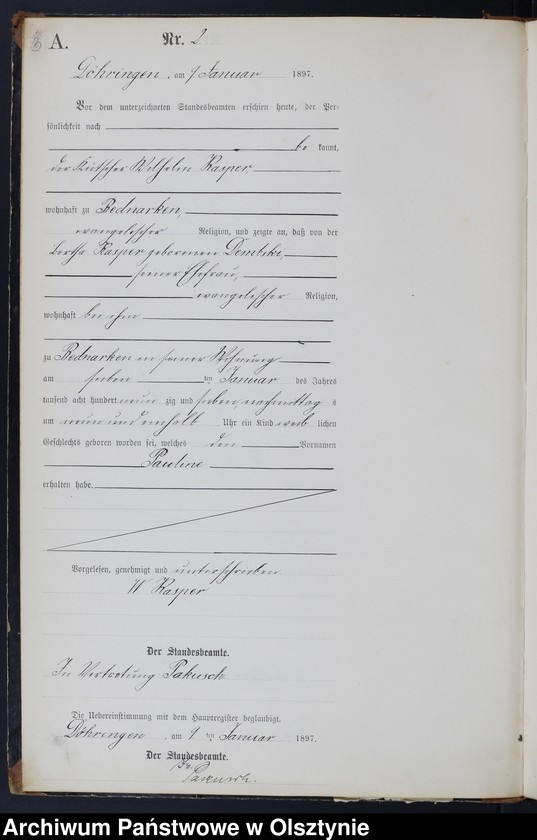 A.
Nr. 2
Döhringen, am 9 Januar 1897.
Vor dem unterzeichneten Standesbeamten erschien heute, der Per-
sönlichkeit nach
be kannt,
der Kutscher Wilhelm Kasper,
wohnhaft zu Bednarken,
evangelischer Religion, und zeigte an, daß von der
Bertha Kasper geborenen Dembski,
seiner Ehefrau,
evangelischer Religion,
wohnhaft bei ihm
zu Bednarken in seiner Wohnung
am sieben ten Januar des Jahres
tausend acht hundert neun zig und sieben, nachmittag s
um neun und einhalb Uhr ein Kind weib lichen
Geschlechts geboren worden sei, welches den Vornamen
Pauline
erhalten habe.
Vorgelesen, genehmigt und unterschrieben
W Kasper
Der Standesbeamte.
In Vertretung: Pakusch
Die Uebereinstimmung mit dem Hauptregister beglaubigt.
Döhringen, am 9 ten Januar 1897.
Der Standesbeamte.
Pakusch.
Archiwum Państwowe w Olsztynie